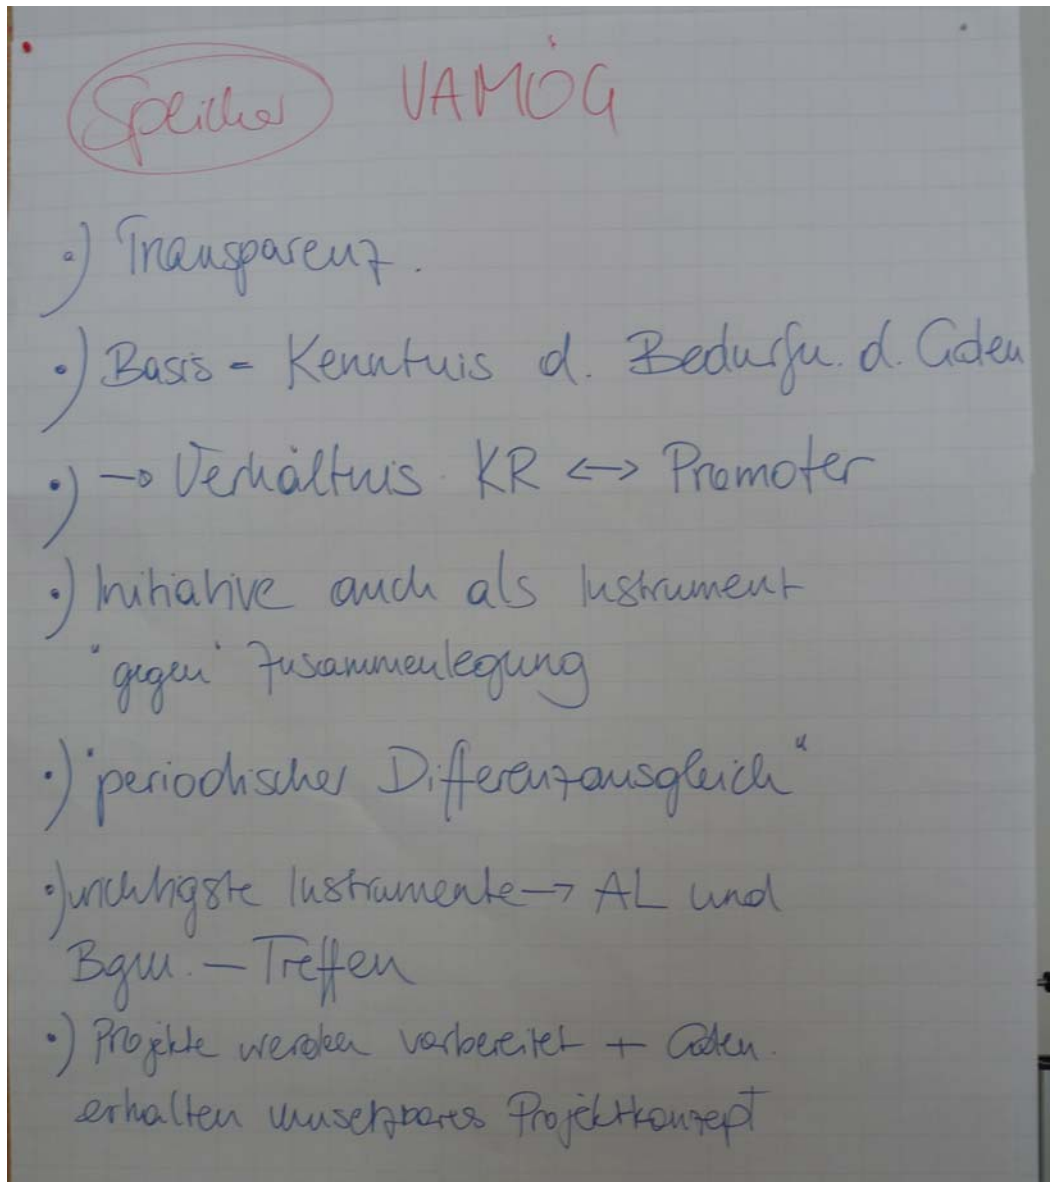 Speicher VAMÖG
•) Transparenz.
•) Basis - Kenntnis d. Bedürfn. d. Gden
•) → Verhältnis KR ↔ Promoter
•) Initiative auch als Instrument
"gegen" Zusammenlegung
•) "periodischer Differenzausgleich"
•) wichtigste Instrumente → AL und
Bgm. - Treffen
•) Projekte werden vorbereitet + Gden.
erhalten umsetzbares Projektkonzept